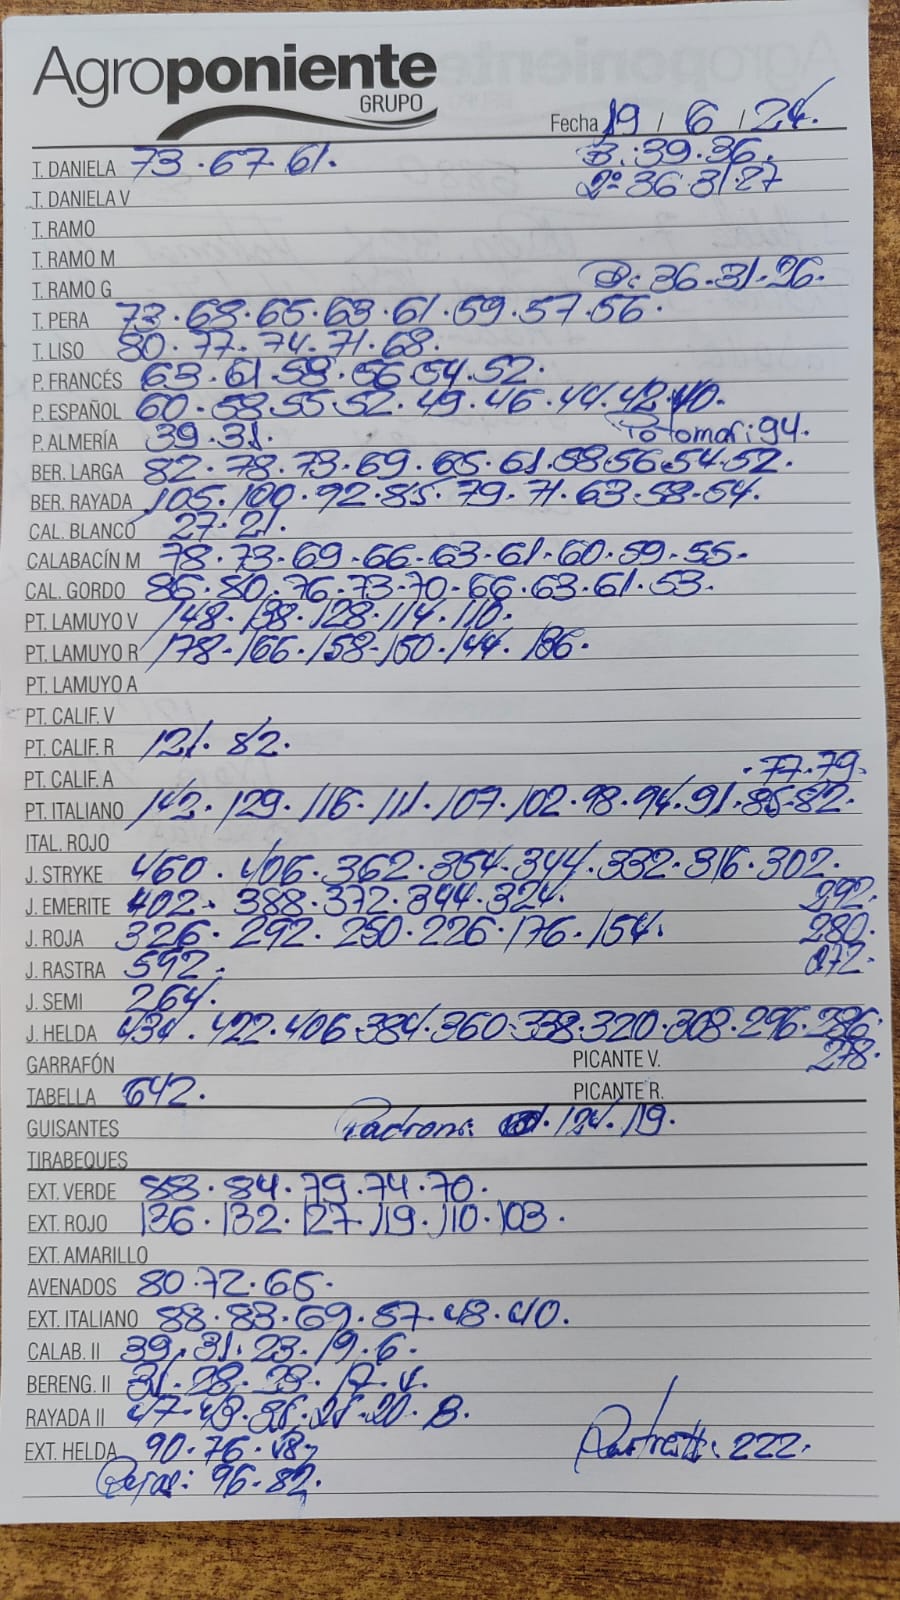 Agroponiente
GRUPO
Fecha 19 / 6 / 24.
T. DANIELA 73.67.61. B.:39.36.
T. DANIELA V 2º 36.31.27
T. RAMO
T. RAMO M
T. RAMO G 36.31.26.
T. PERA 73.68.65.63.61.59.57.56.
T. LISO 80.77.74.71.68.
P. FRANCÉS 63.61.58.56.54.52.
P. ESPAÑOL 60.58.55.52.49.46.44.42.40.
P. ALMERÍA 39.31. 94.
BER. LARGA 82.78.73.69.65.61.58.56.54.52.
BER. RAYADA 105.100.92.85.79.71.63.58.54.
CAL. BLANCO 27.21.
CALABACÍN M 78.73.69.66.63.61.60.59.55.
CAL. GORDO 86.80.76.73.70.66.63.61.53.
PT. LAMUYO V 148.138.128.114.110.
PT. LAMUYO R 178.166.158.150.144.136.
PT. LAMUYO A
PT. CALIF. V
PT. CALIF. R 121.82.
PT. CALIF. A .77.79.
PT. ITALIANO 142.129.116.111.107.102.98.94.91.85.82.
ITAL. ROJO
J. STRYKE 460.406.362.354.344.332.316.302.
J. EMERITE 402.388.372.344.324. 292.
J. ROJA 326.292.250.226.176.154. 280.
J. RASTRA 592. 272.
J. SEMI 264.
J. HELDA 434.422.406.384.360.338.320.308.296.286.
GARRAFÓN PICANTE V. 278.
TABELLA 642. PICANTE R.
GUISANTES Padron: 124.119.
TIRABEQUES
EXT. VERDE 88.84.79.74.70.
EXT. ROJO 136.132.127.119.110.103.
EXT. AMARILLO
AVENADOS 80.72.65.
EXT. ITALIANO 88.83.69.57.48.40.
CALAB. II 39.31.23.19.6.
BERENG. II 31.28.23.17.
RAYADA II 47.43. 20.
EXT. HELDA 90.76. 222.
96.82.